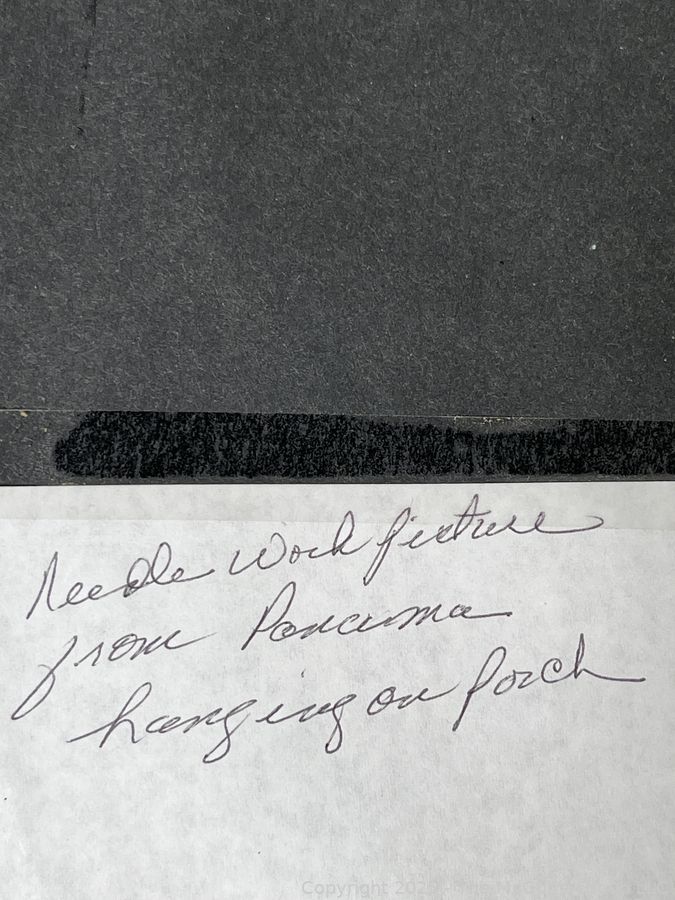 Needle Work picture
from Panama
hanging on porch
Copyright